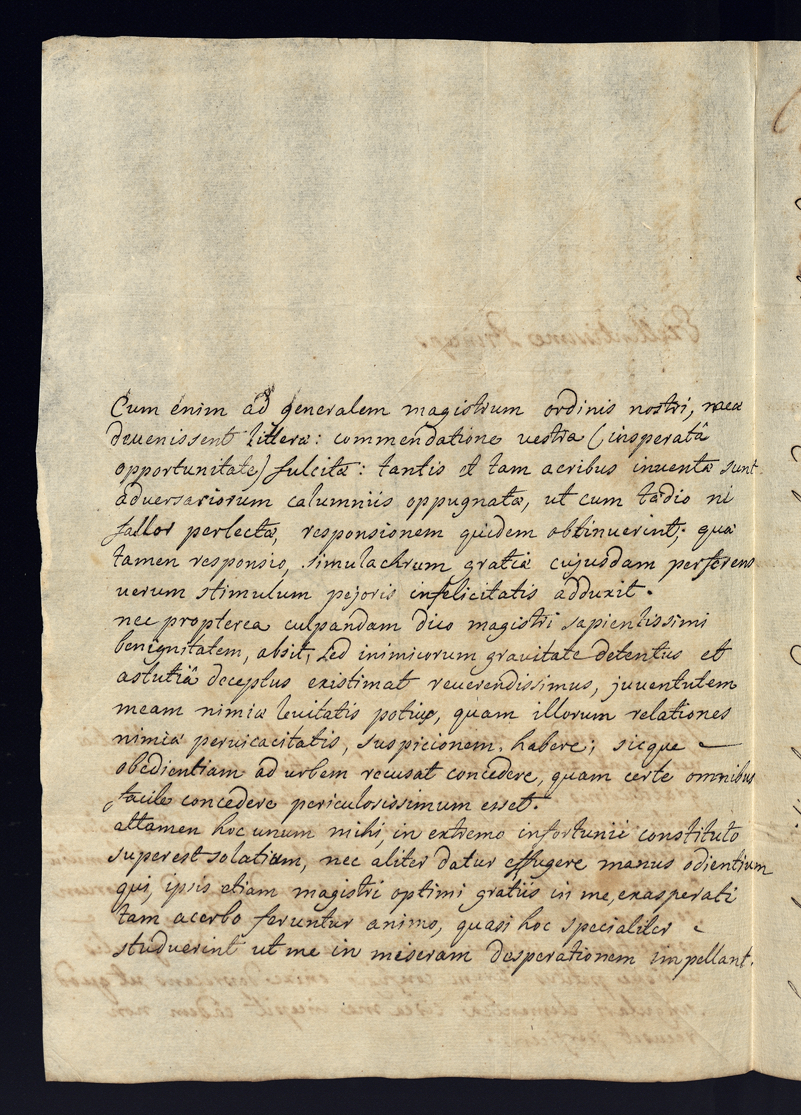 Cum enim ad generalem magistrum ordinis nostri, meæ
deuenissent litteræ: commendatione vestra (insperatâ
opportunitate) fulcitæ: tantis et tam acribus inuentæ sunt
aduersariorum calumniis oppugnatæ, ut cum tædio ni
fallor perlectæ, responsionem quidem obtinuerint; quæ
tamen responsio, simulachrum gratiæ cujusdam præferens
uerum stimulum pejoris infelicitatis adduxit.
nec propterea culpandam duco magistri sapientissimi
benignitatem, absit, sed inimicorum grauitate detentus et
astutiâ deceptus existimat reuerendissimus, juuentutem
meam nimiæ leuitatis potius, quam illorum relationes
nimiæ peruicacitatis, suspicionem habere; sicque
obedientiam ad urbem recusat concedere, quam certe omnibus
facile concedere periculosissimum esset.
attamen hoc unum mihi, in extremo infortunii constituto
superest solatium, nec aliter datur effugere manus odientium
qui, ipsis etiam magistri optimi gratiis in me, exasperati
tam acerbo feruntur animo, quasi hoc specialiter
studuerint ut me in miseram desperationem impellant.